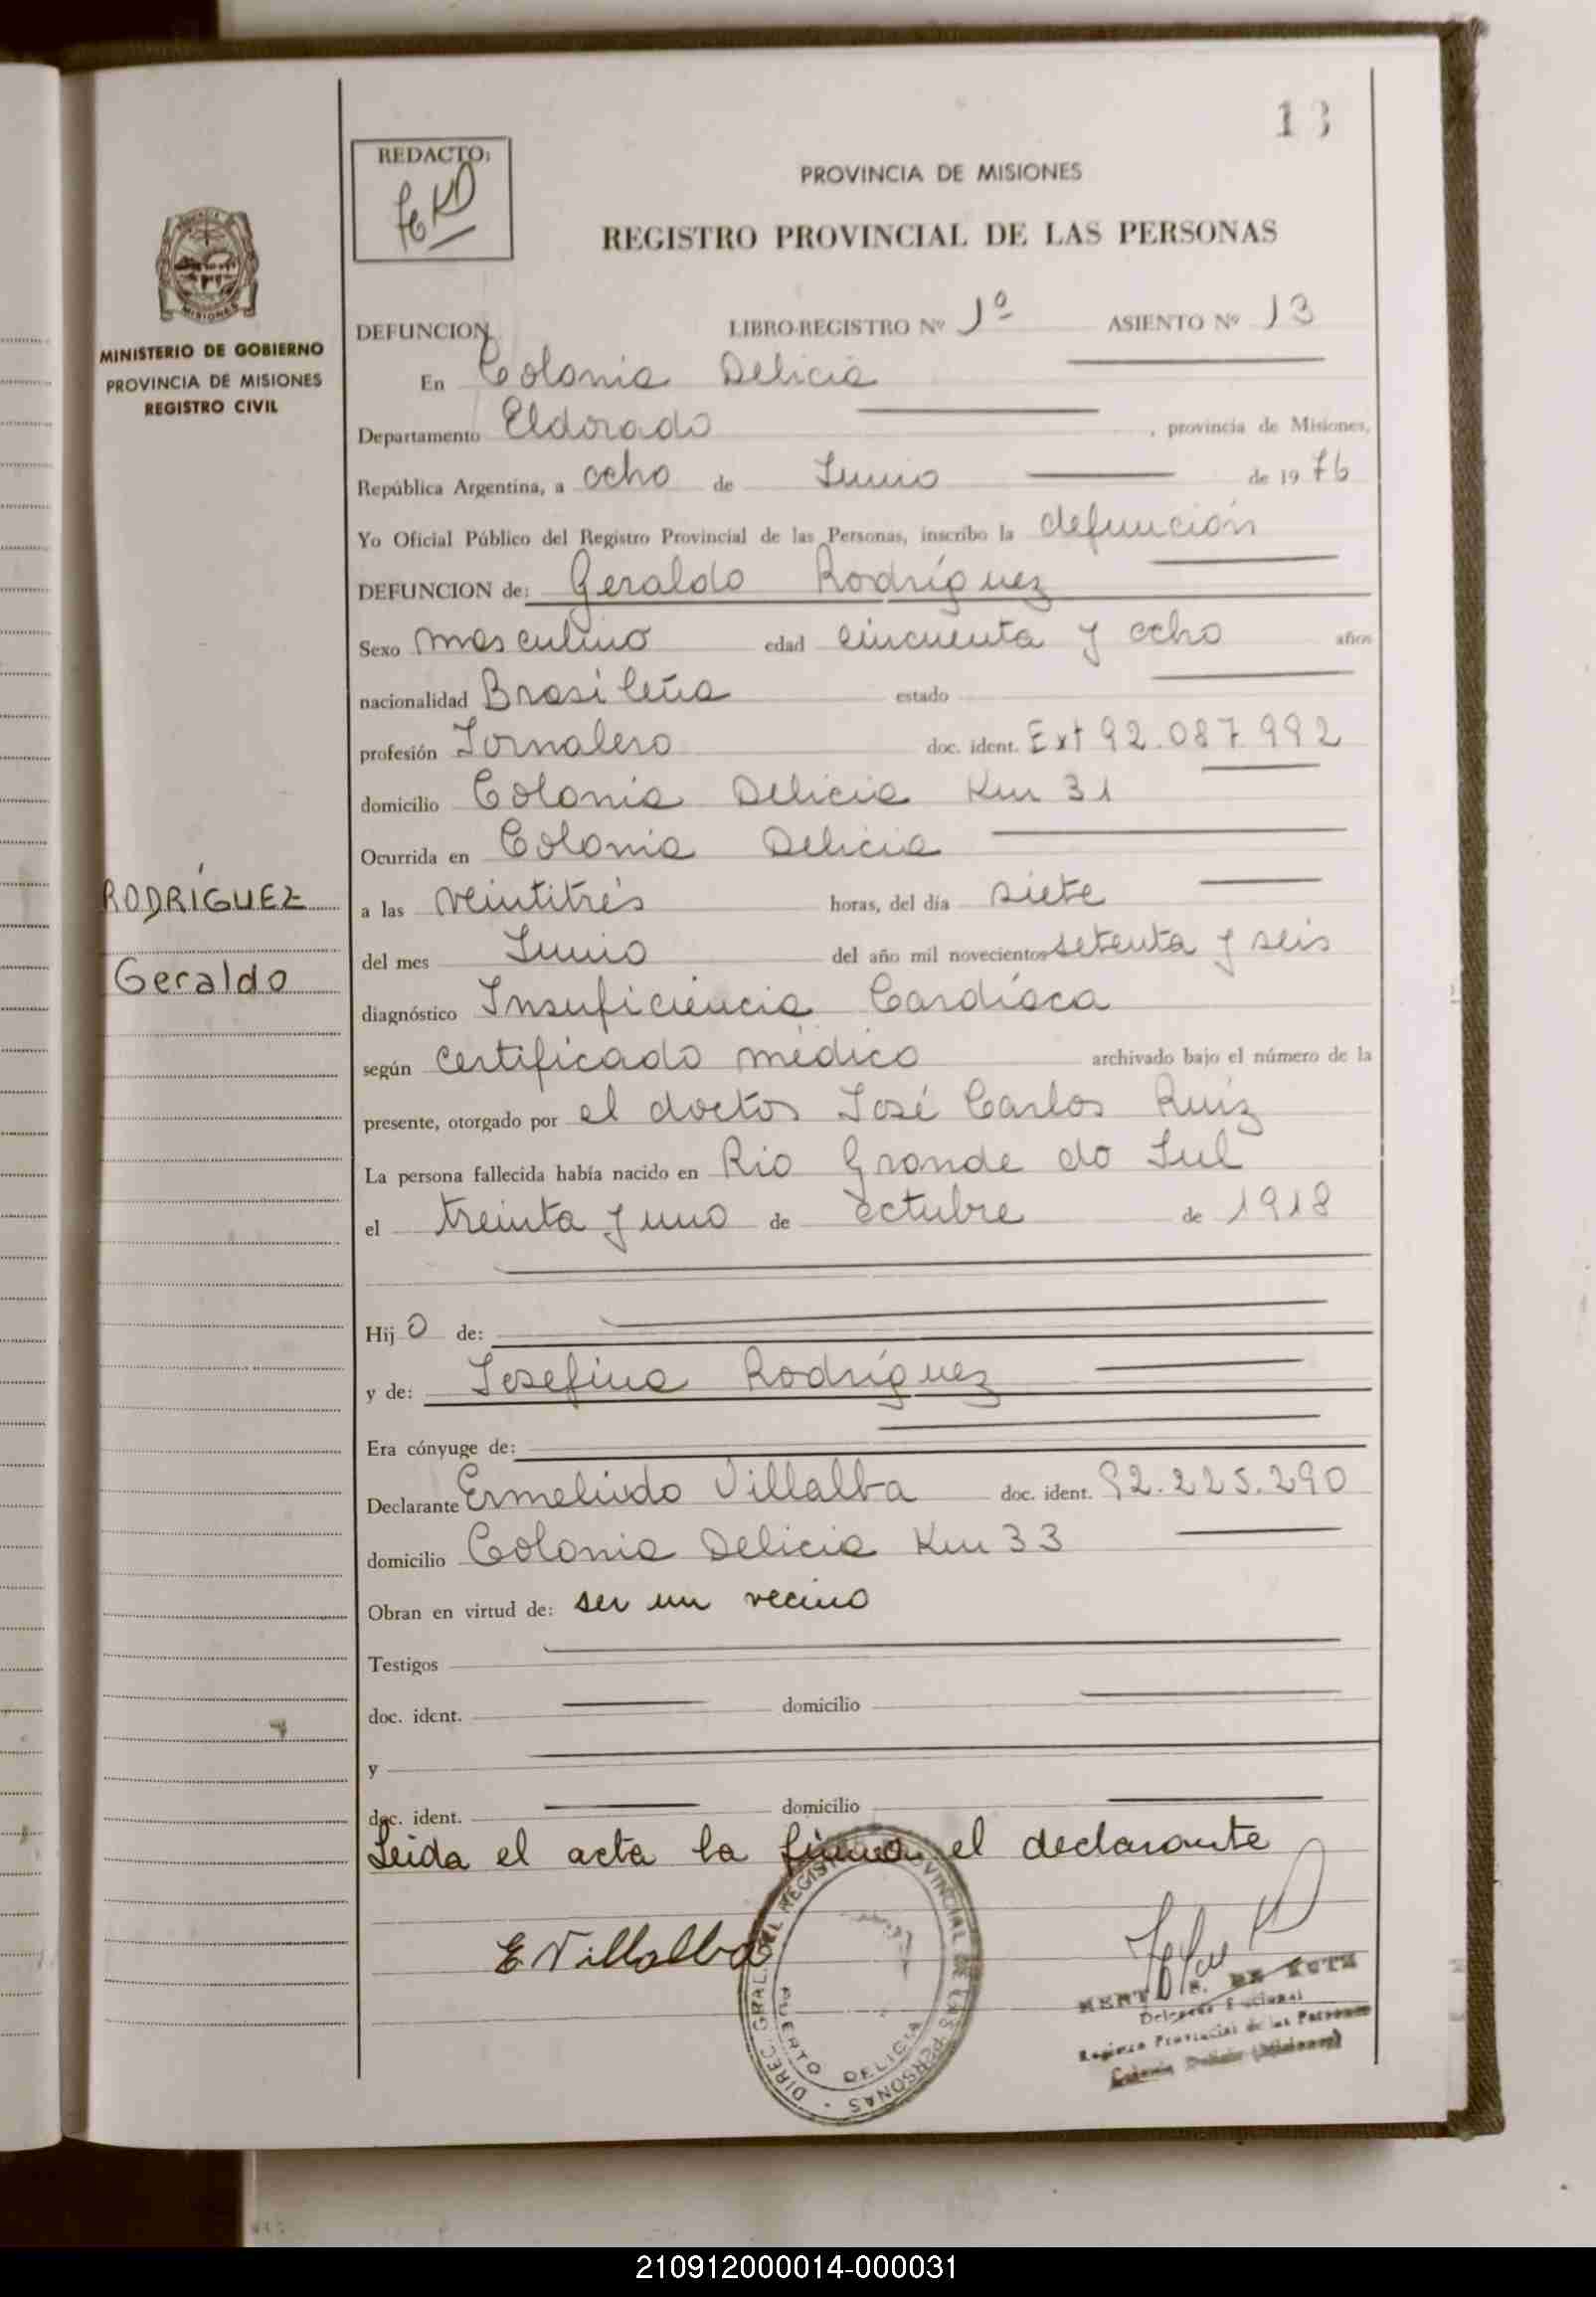 13
REDACTO:
PROVINCIA DE MISIONES
REGISTRO PROVINCIAL DE LAS PERSONAS
MISIONES
MINISTERIO DE GOBIERNO
PROVINCIA DE MISIONES
REGISTRO CIVIL
RODRÍGUEZ
Geraldo
DEFUNCION LIBRO-REGISTRO Nº 1º ASIENTO Nº 13
En Colonia Delicia
Departamento Eldorado, provincia de Misiones,
República Argentina, a ocho de Junio de 1976
Yo Oficial Público del Registro Provincial de las Personas, inscribo la defunción
DEFUNCION de: Geraldo Rodríguez
Sexo masculino edad cincuenta y ocho años
nacionalidad Brasileña estado
profesión Jornalero doc. ident. Ext 92.087.992
domicilio Colonia Delicia Km 31
Ocurrida en Colonia Delicia
a las veintitrés horas, del día siete
del mes Junio del año mil novecientos setenta y seis
diagnóstico Insuficiencia Cardíaca
según certificado médico archivado bajo el número de la
presente, otorgado por el doctor José Carlos Ruiz
La persona fallecida había nacido en Rio Grande do Sul
el treinta y uno de octubre de 1918
Hijo de:
y de: Josefina Rodríguez
Era cónyuge de:
Declarante Ermelindo Villalba doc. ident. 92.225.290
domicilio Colonia Delicia Km 33
Obran en virtud de: ser un vecino
Testigos
doc. ident. domicilio
y
doc. ident. domicilio
Leida el acta la firma el declarante
E Villalba
DIREC. GRAL. DEL REGISTRO PROVINCIAL DE LAS PERSONAS
PUERTO DELICIA
Registro Provincial de las Personas
Colonia Delicia (Misiones)
210912000014-000031